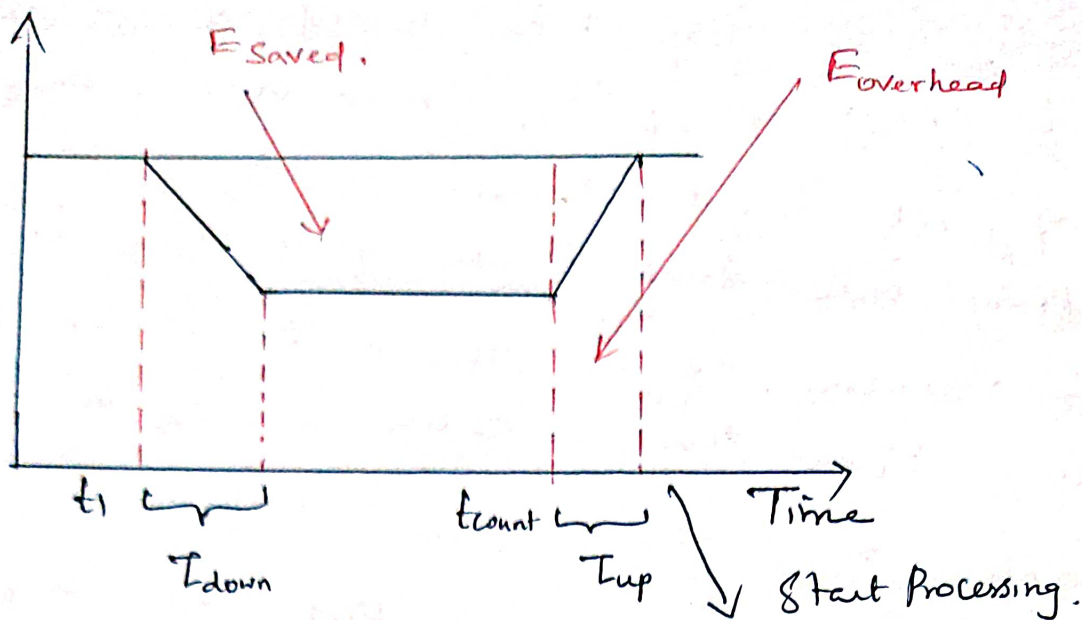 E saved.
E overhead
t1
τdown
tcount
τup
Time
Start Processing.